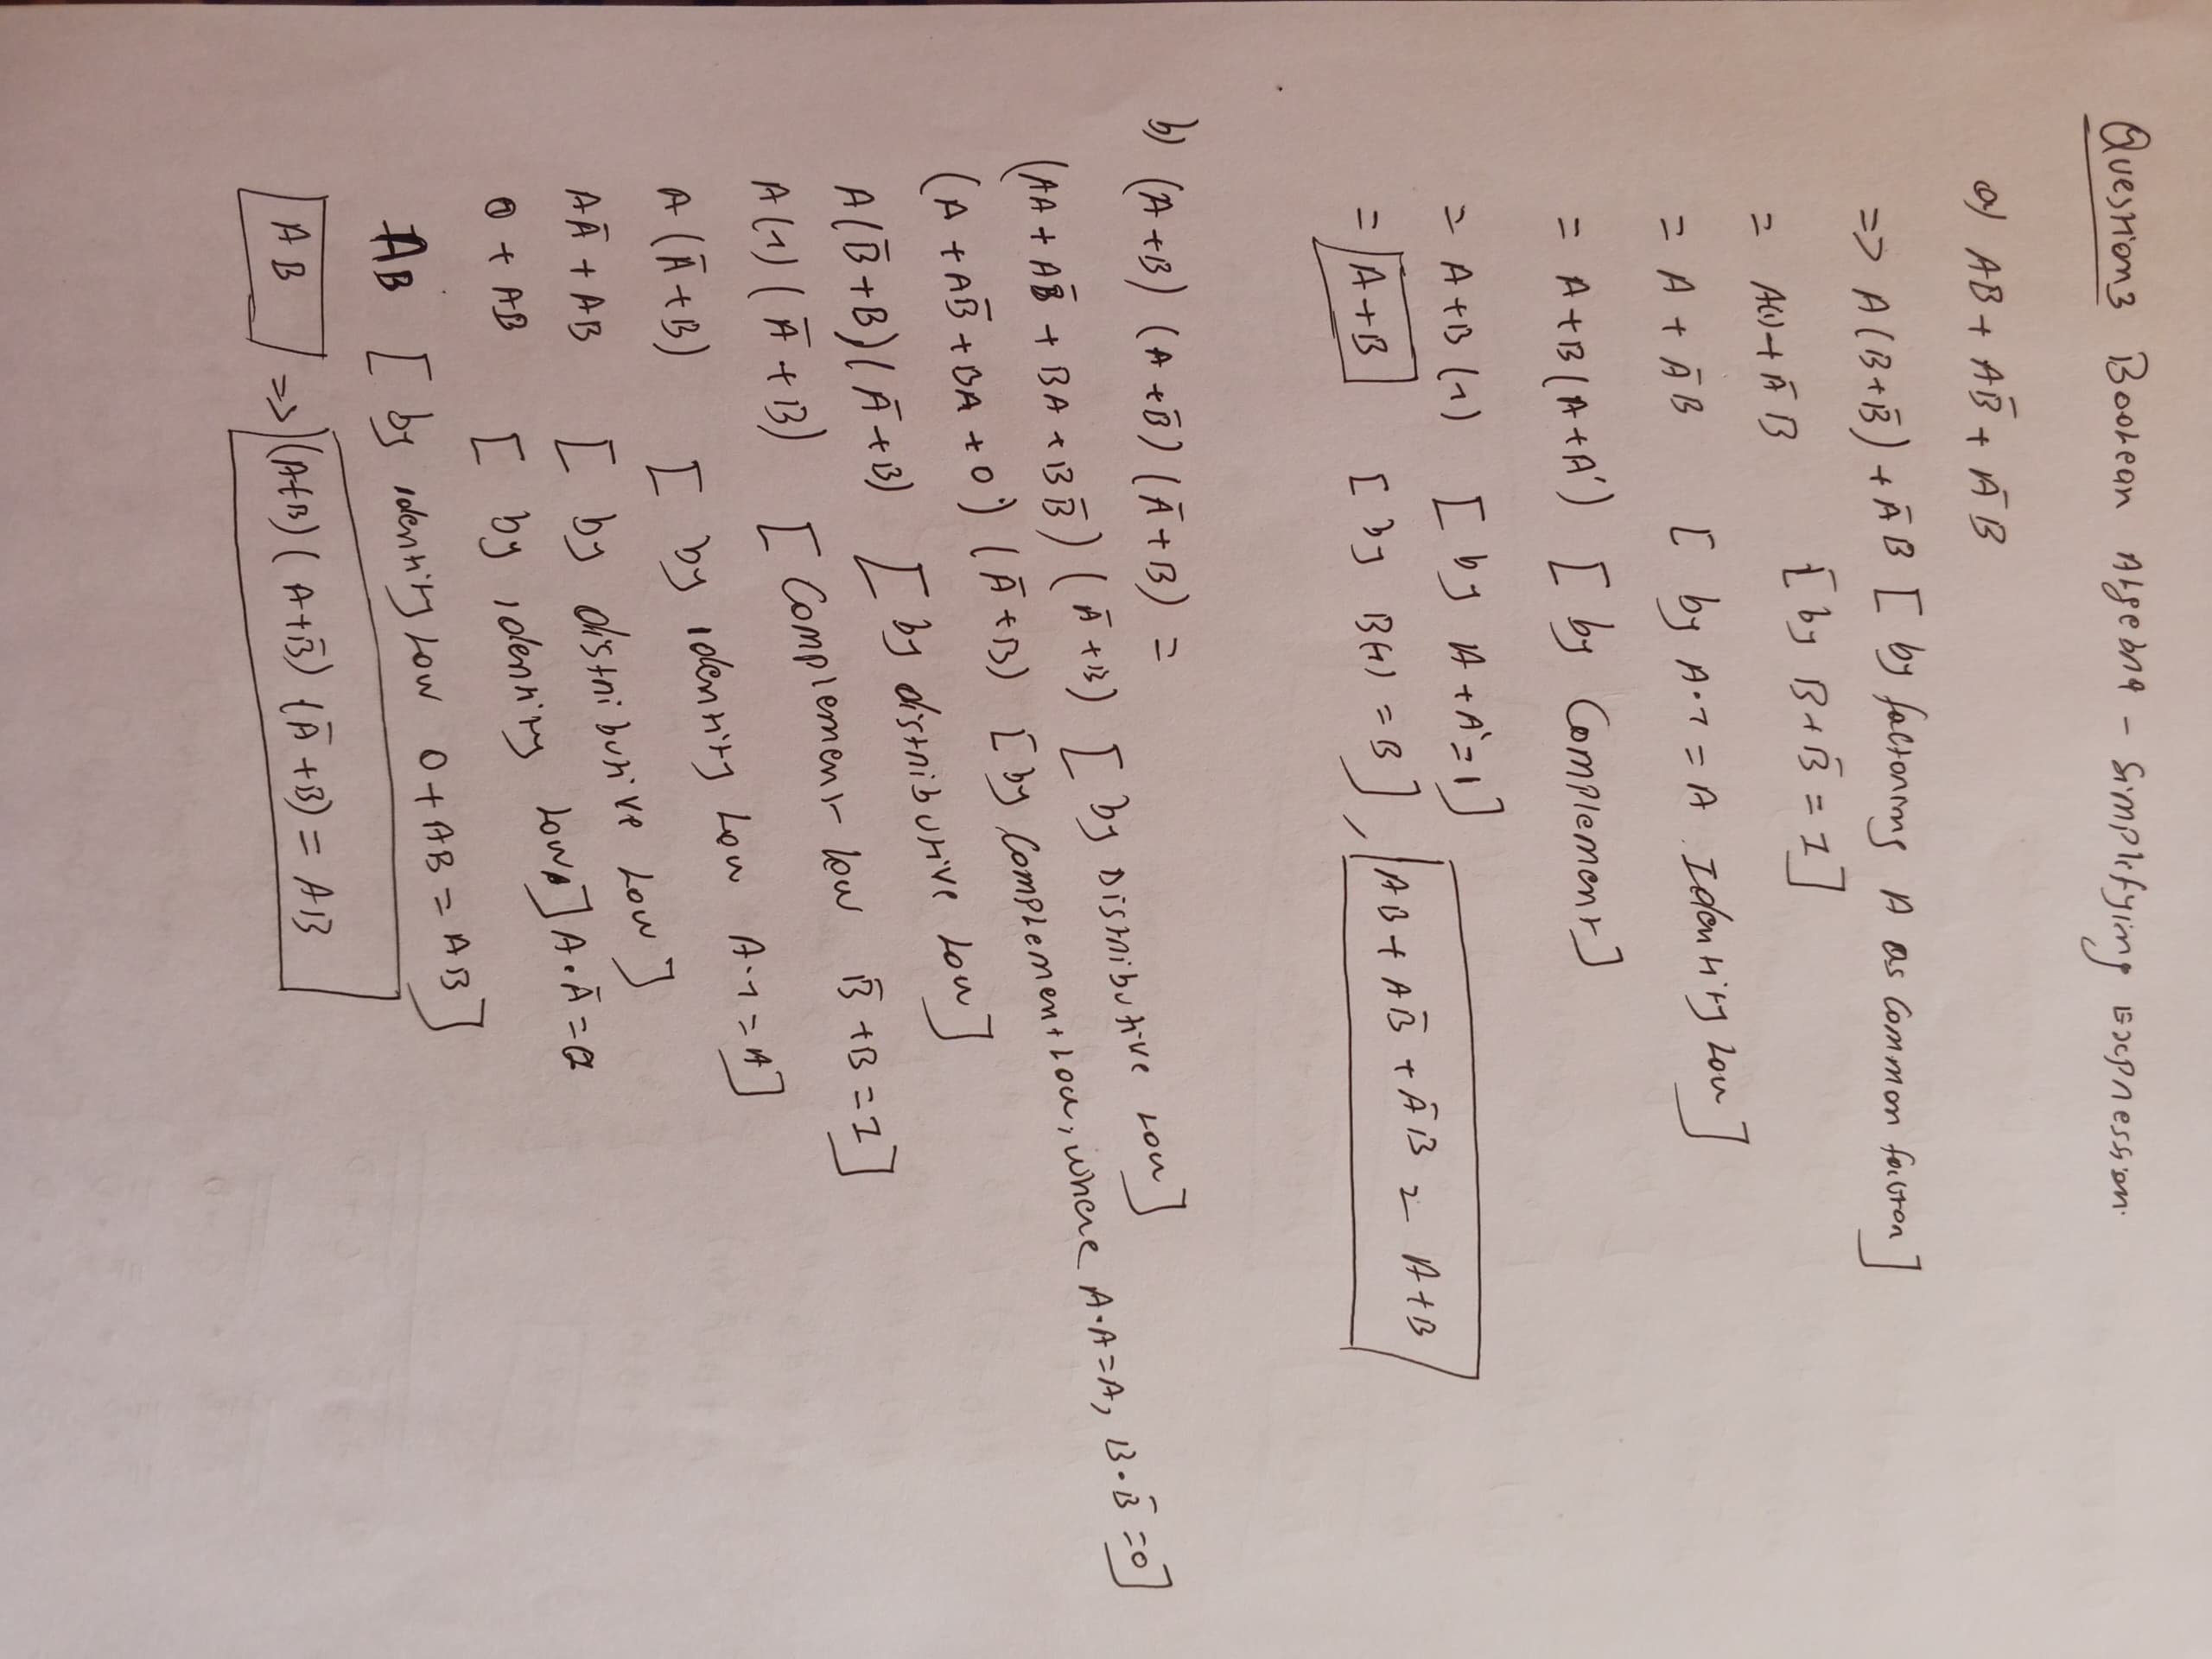 Question3 Boolean Algebra - Simplifying Expression.
a) AB + AB̄ + ĀB
=> A(B+B̄) + ĀB [ by factoring A as Common factor ]
= A(1) + ĀB [ by B+B̄ = 1 ]
= A + ĀB [ by A·1 = A Identity Law ]
= A+B(A+A') [ by Complement ]
= A+B(1) [ by A+A'=1 ]
= A+B [ by B(1) = B ], AB + AB̄ + ĀB = A+B
b) (A+B) (A+B̄) (Ā+B) =
(AA + AB̄ + BA + BB̄) (Ā+B) [ by Distributive Law ]
(A + AB̄ + BA + 0) (Ā+B) [ by Complement Law, where A·A=A, B·B̄=0 ]
A(B̄+B)(Ā+B) [ by distributive Law ]
A(1)(Ā+B) [ Complement law B̄+B=1 ]
A(Ā+B) [ by identity Law A·1=A ]
AĀ + AB [ by distributive Law ]
0 + AB [ by identity Law ] A·Ā=0
AB [ by identity Law 0+AB=AB ]
AB => (A+B) (A+B̄) (Ā+B) = AB